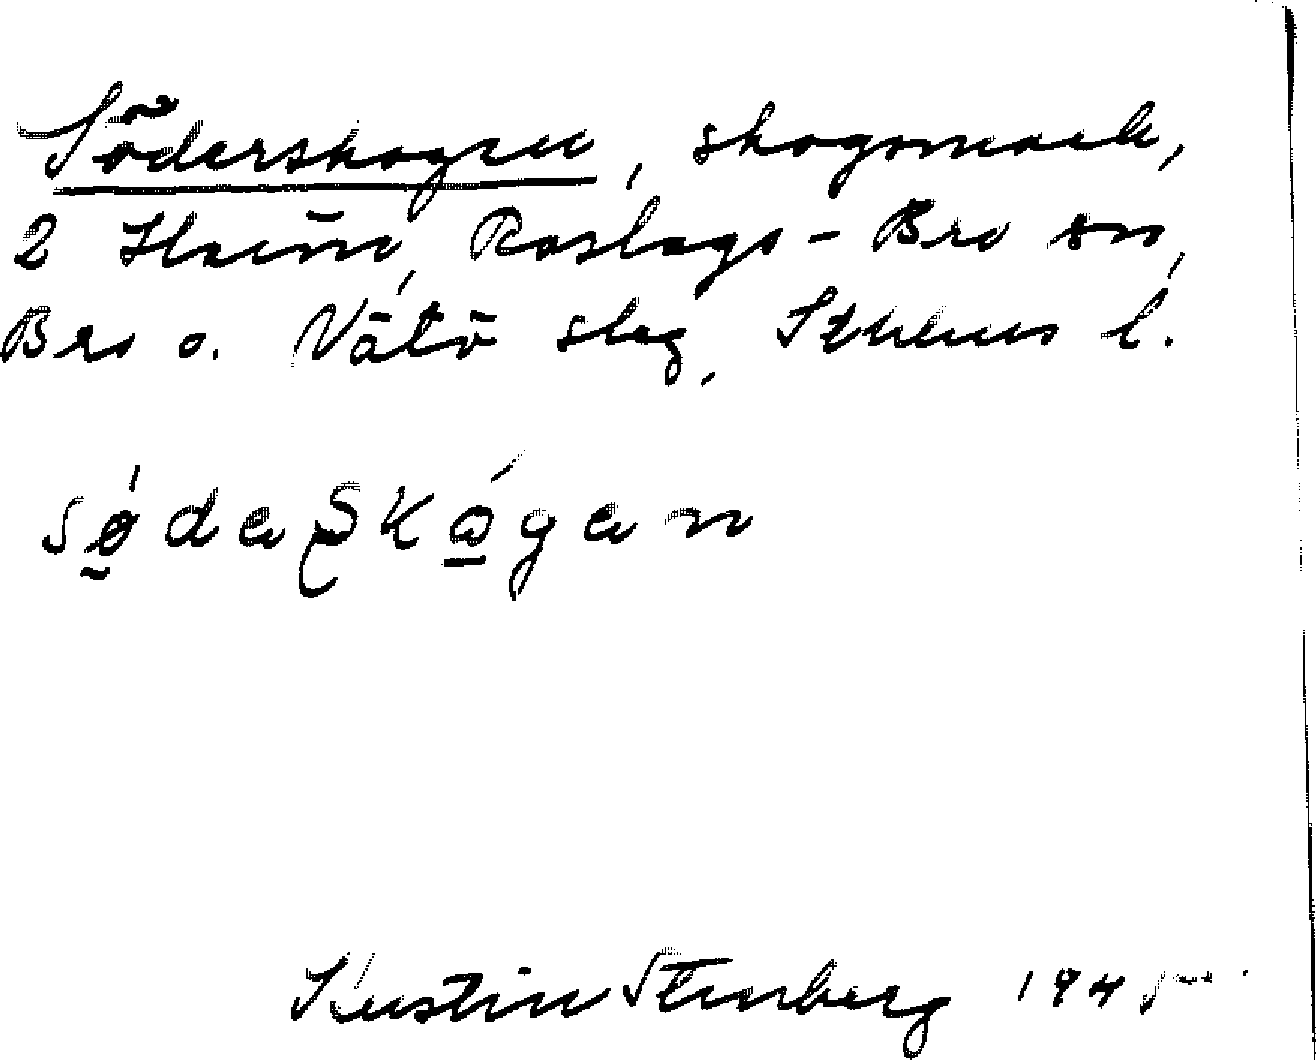 Söderskogen, skogsmark,
2 Roslags-Bro sn,
Bro o. Vätö slag, Sthlms l.
södaskogan
Kerstin Stenberg 1945.